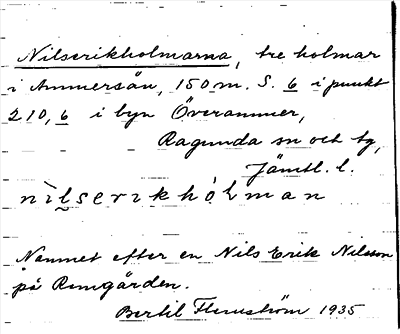 Nilserikholmarna, tre holmar
i Ammersån, 150 m. S. 6 i punkt
210,6 i byn Överammer,
Ragunda sn och tg,
Jämtl. l.
nìlserikhòlman
Namnet efter en Nils Erik Nilsson
på Remgården.
Bertil Flemström 1935